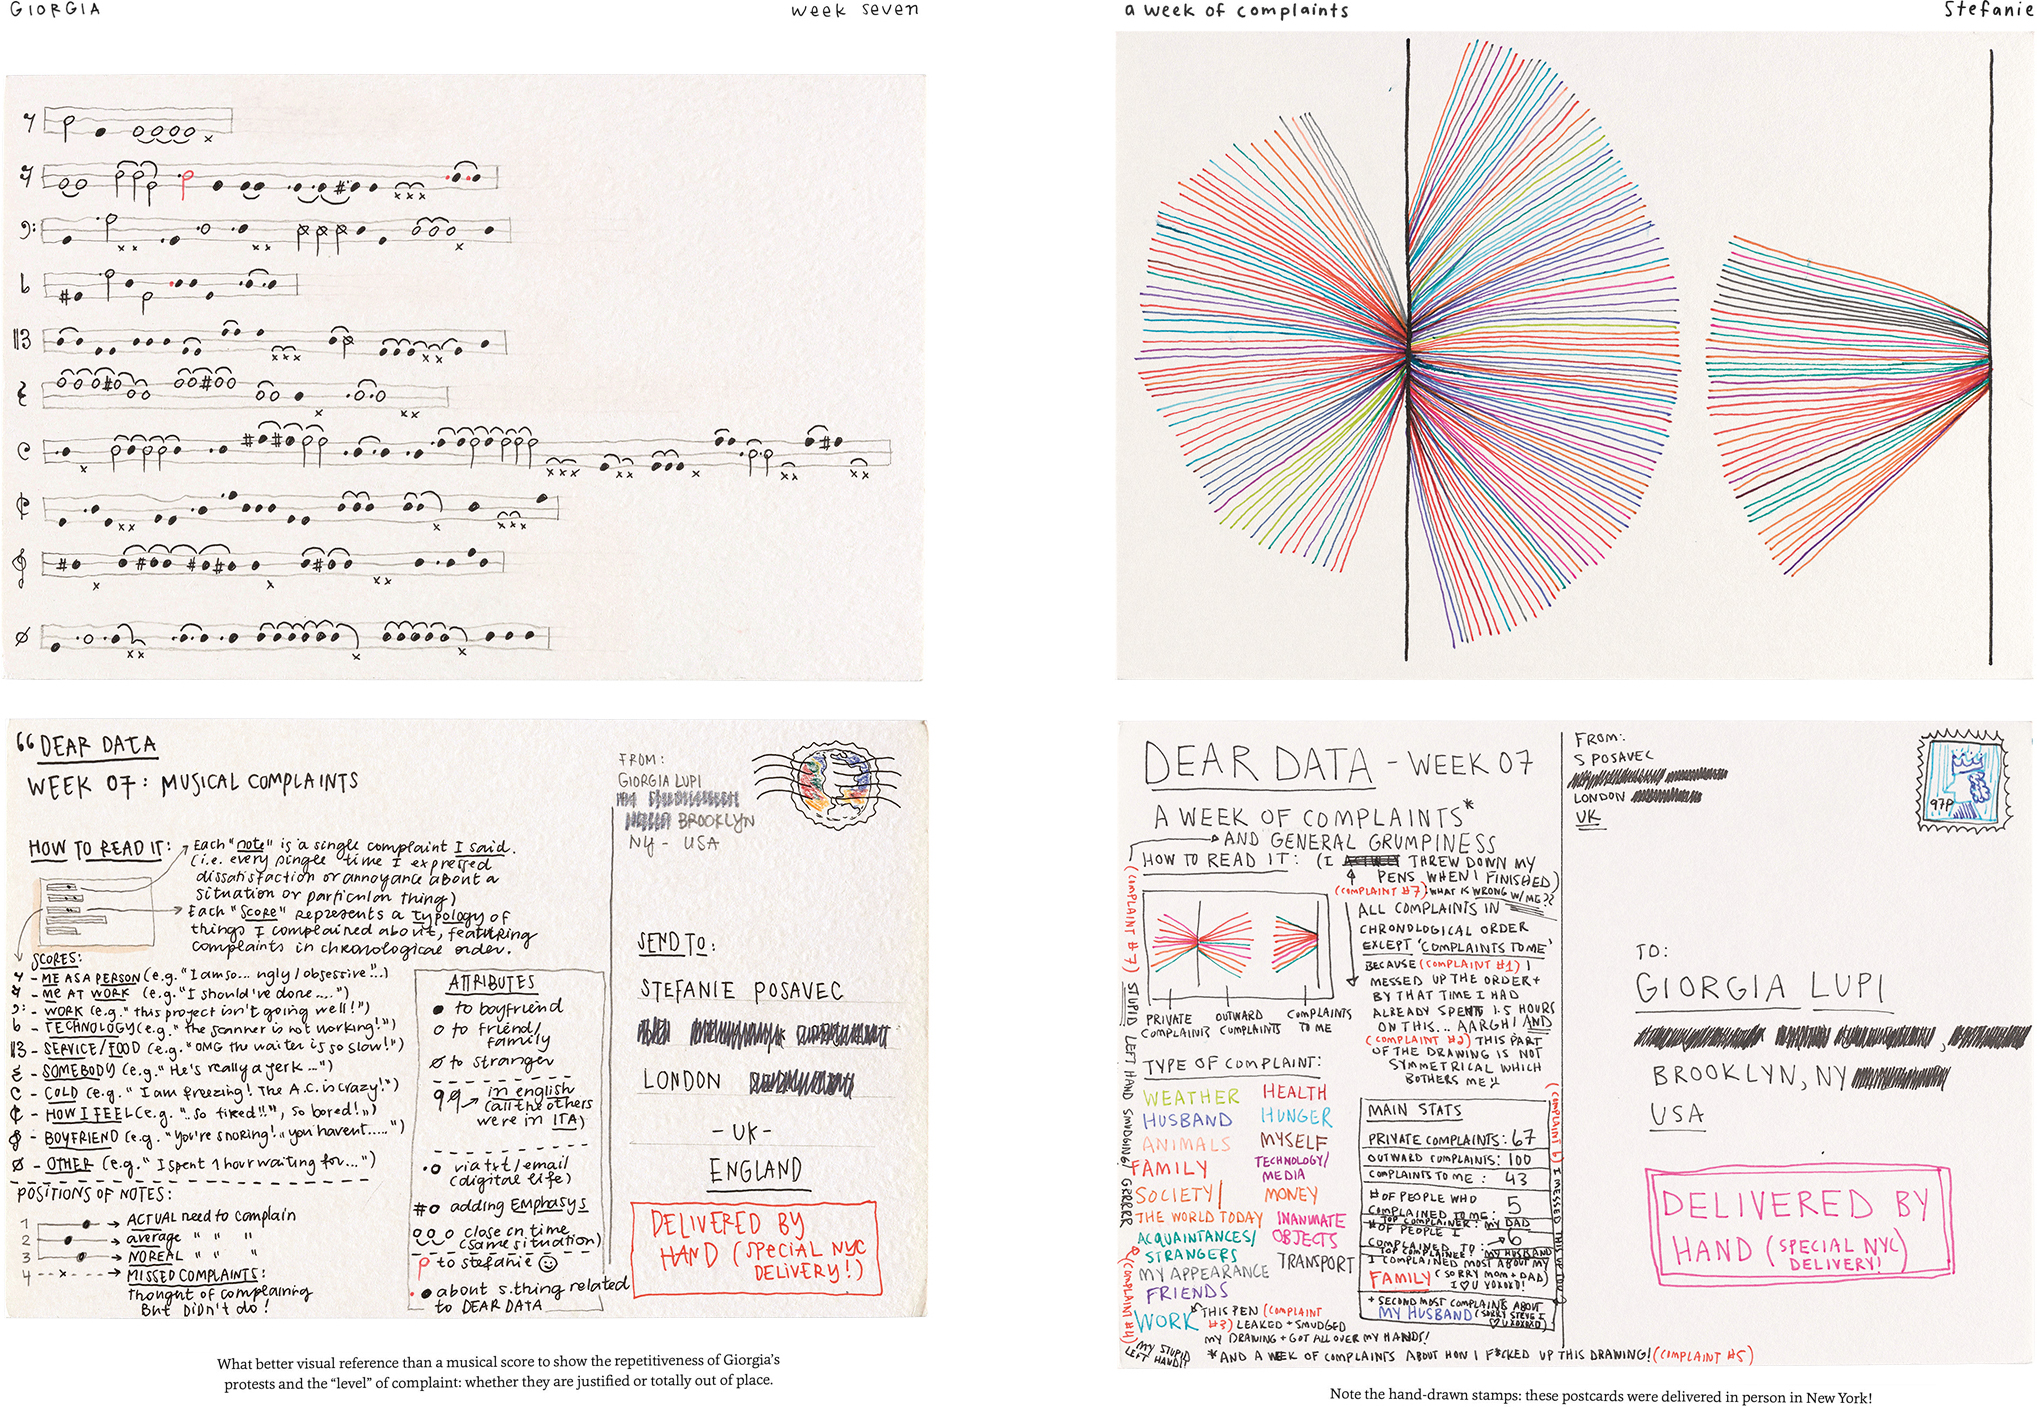 GIORGIA
week seven
a week of complaints
Stefanie
"DEAR DATA
WEEK 07: MUSICAL COMPLAINTS
HOW TO READ IT:
Each "note" is a single complaint I said.
(i.e. every single time I expressed
dissatisfaction or annoyance about a
situation or particular thing)
Each "Score" represents a typology of
things I complained about, featuring
complaints in chronological order.
SCORES:
- ME AS A PERSON (e.g. "I am so... ugly / obsessive"..)
- ME AT WORK (e.g. "I should've done....")
- WORK (e.g. "this project isn't going well!")
- TECHNOLOGY (e.g. "the scanner is not working!")
- SERVICE/FOOD (e.g. "OMG the waiter is so slow!")
- SOMEBODY (e.g. "He's really a jerk...")
- COLD (e.g. "I am freezing! The A.C. is crazy!")
- HOW I FEEL (e.g. "..so tired!!", so bored!")
- BOYFRIEND (e.g. "You're snoring!.. you haven't.....")
- OTHER (e.g. "I spent 1 hour waiting for...")
POSITIONS OF NOTES:
1 → ACTUAL need to complain
2 → average " " "
3 → NO REAL " " "
4 → MISSED COMPLAINTS:
Thought of complaining
But DIDN'T do!
ATTRIBUTES
to boyfriend
to friend/
family
to stranger
in english
(all the others
were in ITA)
via txt / email
(digital life)
adding EMPHASYS
close in time
(same situation)
to stefanie
about s.thing related
to DEAR DATA
FROM:
GIORGIA LUPI
BROOKLYN
NY - USA
SEND TO:
STEFANIE POSAVEC
LONDON
- UK -
ENGLAND
DELIVERED BY
HAND (SPECIAL NYC
DELIVERY!)
What better visual reference than a musical score to show the repetitiveness of Giorgia's
protests and the "level" of complaint: whether they are justified or totally out of place.
DEAR DATA - WEEK 07
A WEEK OF COMPLAINTS*
AND GENERAL GRUMPINESS
HOW TO READ IT: (I THREW DOWN MY
PENS WHEN I FINISHED)
(COMPLAINT #7) WHAT IS WRONG W/ME??
ALL COMPLAINTS IN
CHRONOLOGICAL ORDER
EXCEPT 'COMPLAINTS TO ME'
BECAUSE (COMPLAINT #1) I
MESSED UP THE ORDER +
BY THAT TIME I HAD
ALREADY SPENT 1.5 HOURS
ON THIS... AARGH! AND
(COMPLAINT #2) THIS PART
OF THE DRAWING IS NOT
SYMMETRICAL WHICH
BOTHERS ME!
PRIVATE COMPLAINTS
OUTWARD COMPLAINTS
COMPLAINTS TO ME
(COMPLAINT #7) STUPID LEFT HAND SMUDGING! GRRRRR
TYPE OF COMPLAINT:
WEATHER
HEALTH
HUSBAND
HUNGER
ANIMALS
MYSELF
FAMILY
TECHNOLOGY/
MEDIA
SOCIETY/
THE WORLD TODAY
MONEY
ACQUAINTANCES/
STRANGERS
INANIMATE
OBJECTS
MY APPEARANCE
TRANSPORT
FRIENDS
WORK
THIS PEN (COMPLAINT
#3) LEAKED + SMUDGED
MY DRAWING + GOT ALL OVER MY HANDS!
(COMPLAINT #4) MY STUPID
LEFT HAND!!
MAIN STATS
PRIVATE COMPLAINTS: 67
OUTWARD COMPLAINTS: 100
COMPLAINTS TO ME: 43
# OF PEOPLE WHO
COMPLAINED TO ME: 5
TOP COMPLAINER: MY DAD
# OF PEOPLE I
COMPLAINED TO: 6
TOP COMPLAINEE: MY HUSBAND
I COMPLAINED MOST ABOUT MY
FAMILY (SORRY MOM + DAD)
I ♡ U XOXOXO!
+ SECOND MOST COMPLAINTS ABOUT
MY HUSBAND (SORRY STEVE I
♡ U XOXOXO)
(COMPLAINT 6) I MESSED THIS UP
*AND A WEEK OF COMPLAINTS ABOUT HOW I F*CKED UP THIS DRAWING! (COMPLAINT #5)
FROM:
S POSAVEC
LONDON
UK
97P
TO:
GIORGIA LUPI
BROOKLYN, NY
USA
DELIVERED BY
HAND (SPECIAL NYC
DELIVERY!)
Note the hand-drawn stamps: these postcards were delivered in person in New York!